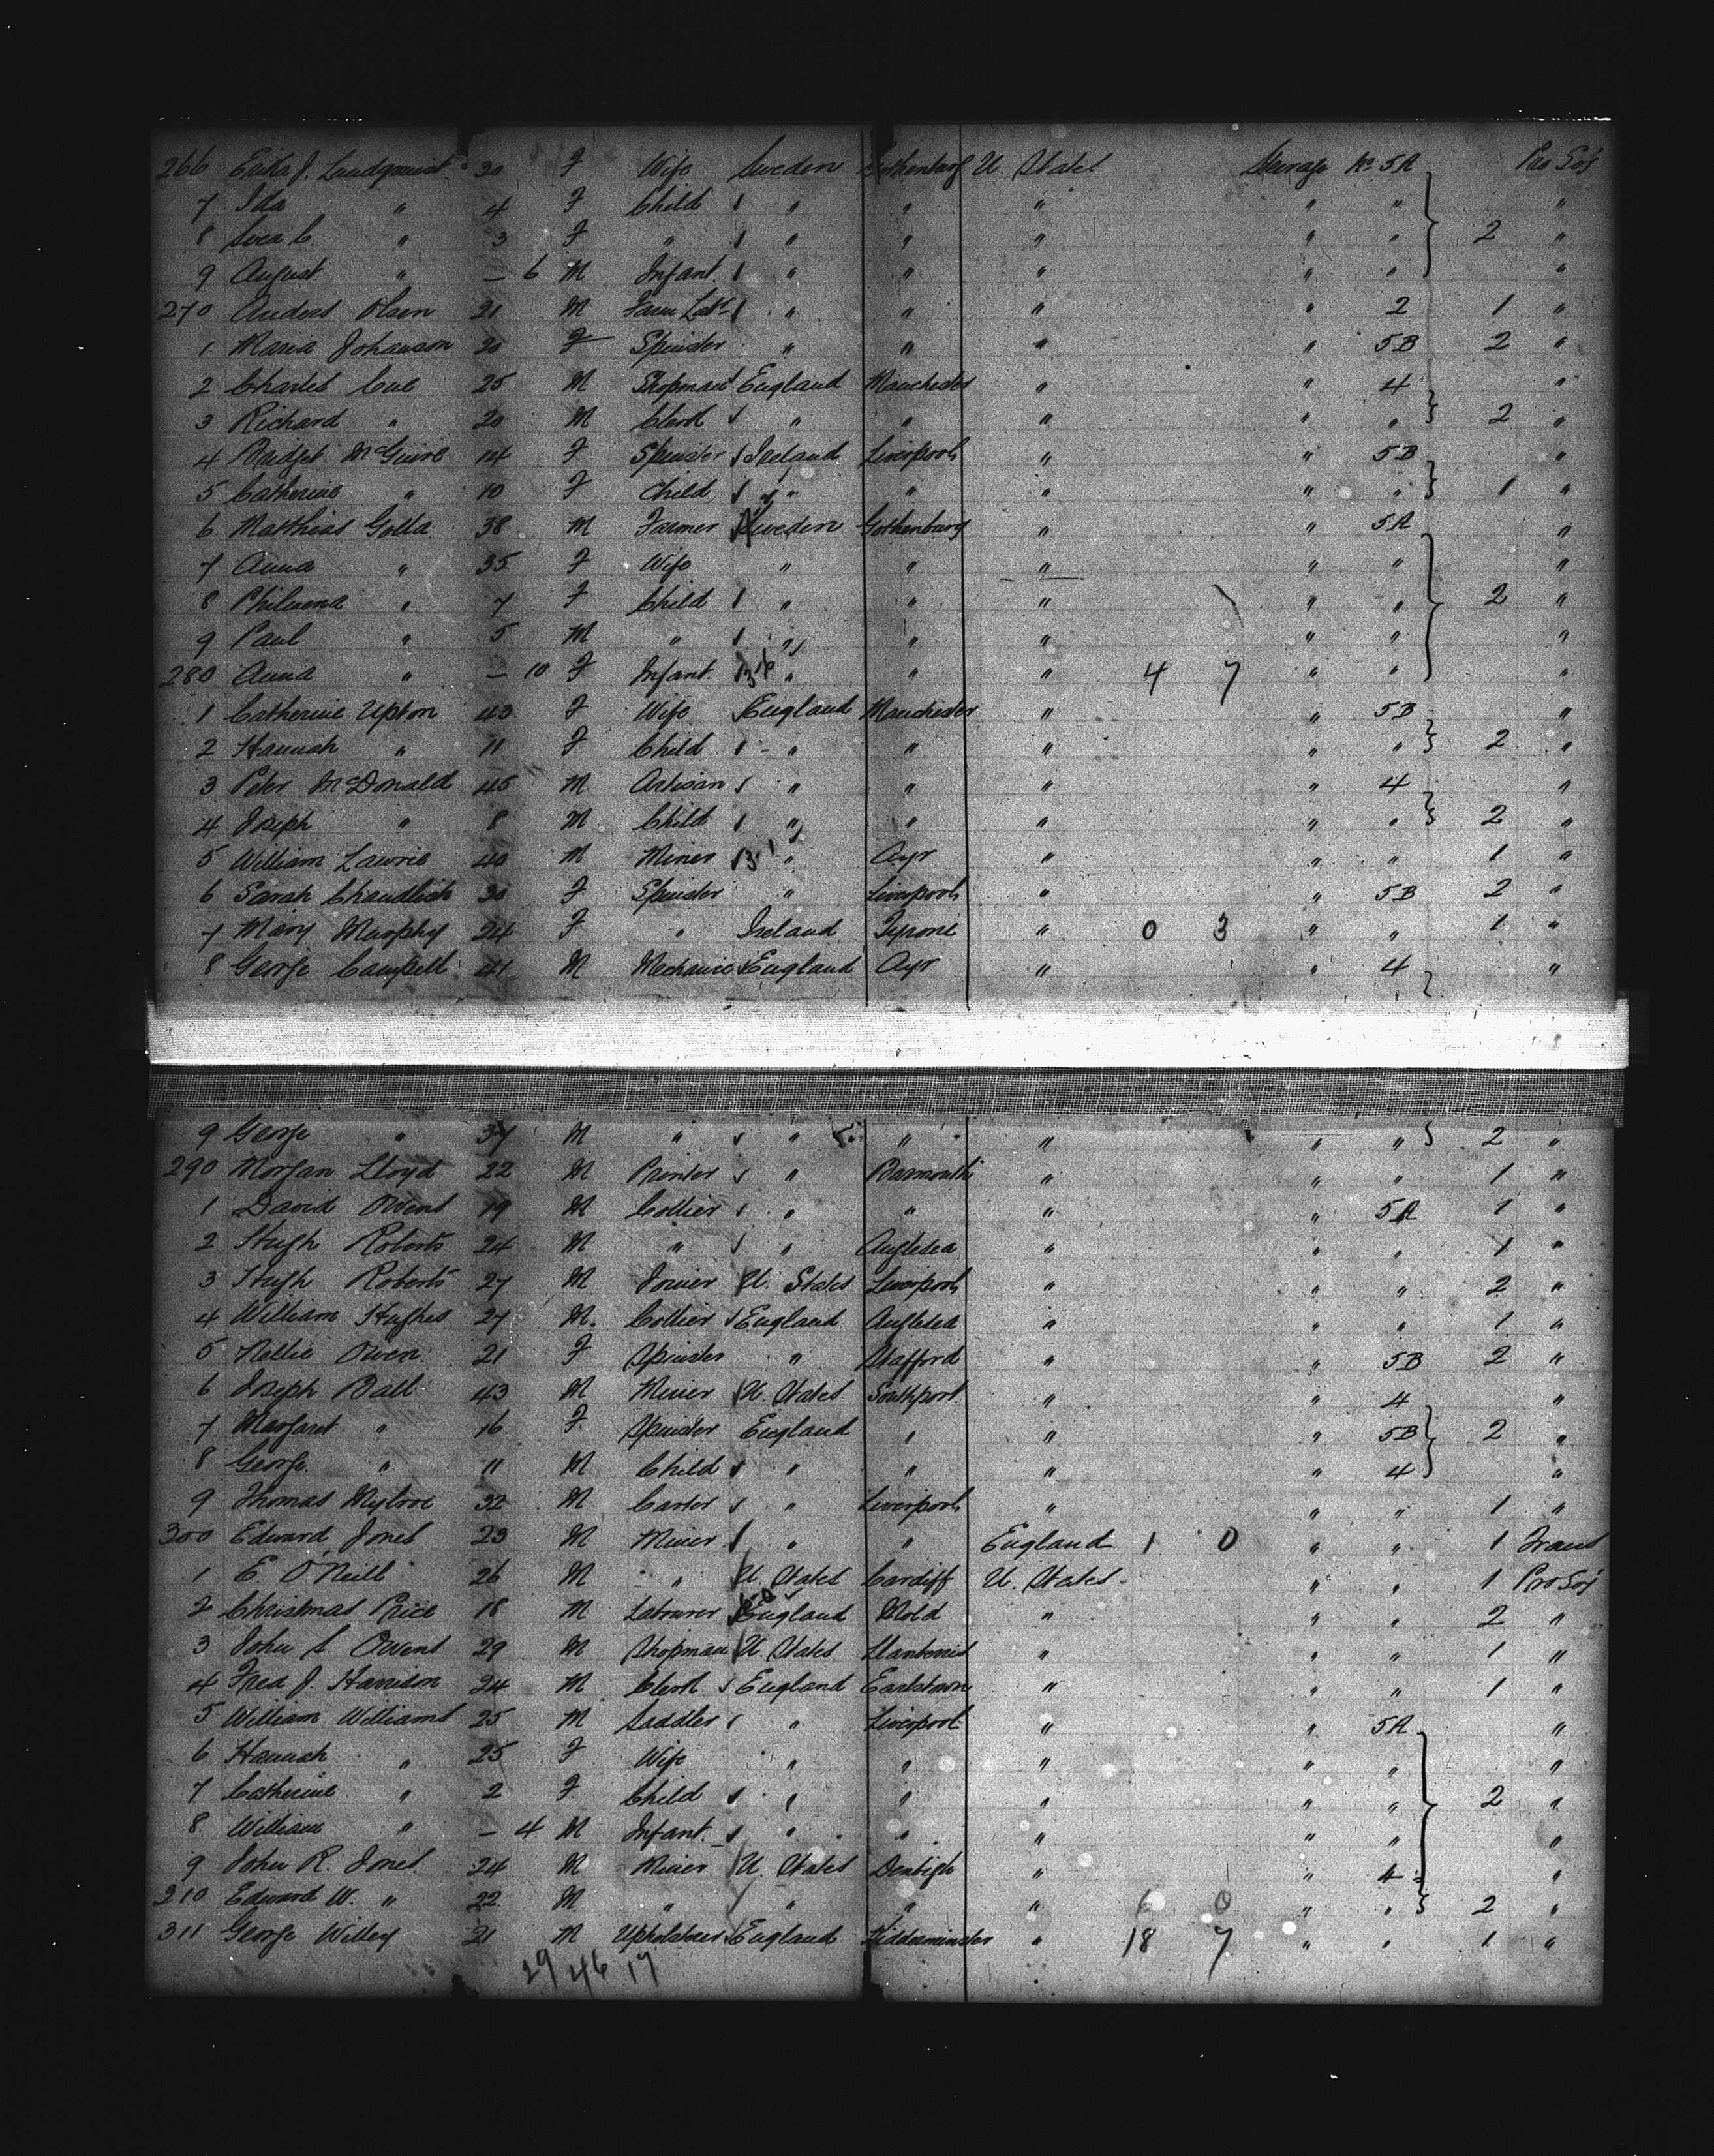 266 Erika J. Lundquist 30 F Wife Sweden Gothenburg U States Steerage No 5A Pro Soj
7 Ida " 4 F Child " " " " " "
8 Svea C. " 3 F " " " " " " 2 "
9 August " — 6 M Infant " " " " " "
270 Anders Olsen 21 M Farm Labr " " " " 2 1 "
1 Maria Johanson 20 F Spinster " " " " 5B 2 "
2 Charles Cue 25 M Shopman England Manchester " " 4 "
3 Richard " 20 M Clerk " " " " " 2 "
4 Bridget McGuire 14 F Spinster Ireland Liverpool " " 5B "
5 Catherine " 10 F Child " " " " " 1 "
6 Matthias Golta 38 M Farmer Sweden Gothenburg " " 5A "
7 Anna " 35 F Wife " " " " " "
8 Philomena " 7 F Child " " " " " 2 "
9 Paul " 5 M " " " " " " "
280 Anna " — 10 F Infant " " " 4 7 " " "
1 Catherine Upton 43 F Wife England Manchester " " 5B "
2 Hannah " 11 F Child " " " " " 2 "
3 Peter McDonald 45 M Artisan " " " " 4 "
4 Joseph " 8 M Child " " " " " 2 "
5 William Lawrie 40 M Miner " Ayr " " " 1 "
6 Sarah 30 F Spinster " Liverpool " " 5B 2 "
7 Mary Murphy 24 F " Ireland Tyrone " 0 3 " " 1 "
8 George Campbell 41 M Mechanic England Ayr " " 4 "
9 George " 37 M " " " " " " 2 "
290 Morgan Lloyd 22 M Printer " Barmouth " " " 1 "
1 David Owens 19 M Collier " " " " 5A 1 "
2 Hugh Roberts 24 M " " Anglesea " " " 1 "
3 Hugh Roberts 27 M Joiner U. States Liverpool " " " 2 "
4 William Hughes 27 M. Collier England Anglesea " " " 1 "
5 Nellie Owen 21 F Spinster " Stafford " " 5B 2 "
6 Joseph Ball 43 M Miner U. States Southport " " 4 "
7 Margaret " 16 F Spinster England " " " 5B 2 "
8 George " 11 M Child " " " " 4 "
9 Thomas Mylroi 32 M Carter " Liverpool " " " 1 "
300 Edward Jones 23 M Miner " " England 1 0 " " 1 Trans
1 E O'Neill 26 M " U. States Cardiff U. States " " 1 Pro Soj
2 Christmas Price 18 M Labourer England Mold " " " 2 "
3 John S. Owens 29 M Shopman U. States Llanberris " " " 1 "
4 Fred J. Harrison 24 M Clerk England Earlstown " " " 1 "
5 William Williams 25 M Saddler " Liverpool " " 5A "
6 Hannah " 25 F Wife " " " " " "
7 Catherine " 2 F Child " " " " " 2 "
8 William " — 4 M Infant " " " " " "
9 John R. Jones 24 M Miner U. States Denbigh " " 4 "
310 Edward W. " 22 M " " " " 6 0 " " 2 "
311 George Willey 21 M Upholsterer England Kidderminster " 18 7 " " 1 "
29 46 17